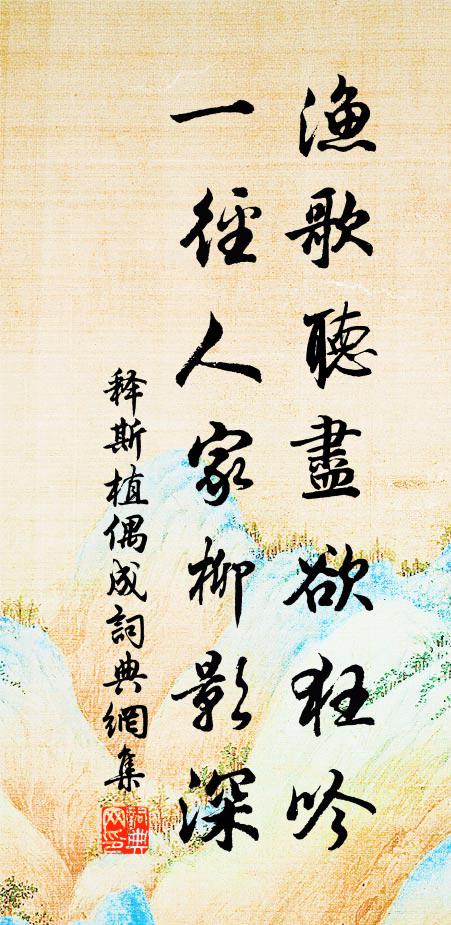 漁歌聽盡欲狂吟
一徑人家柳影深
释斯植偶成詞典網集
詞典网印